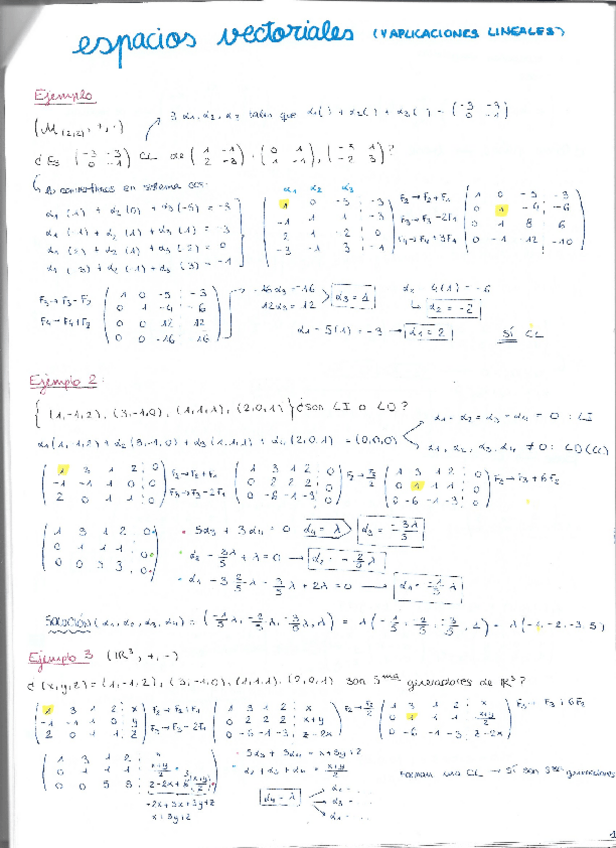 espacios vectoriales (Y APLICACIONES LINEALES)
Ejemplo
(M(2,2), +, ·)
∃ α1, α2, α3 tales que α1( ) + α2( ) + α3( ) = (-3 -3 / 0 -1)
¿Es (-3 -3 / 0 -1) CL de (1 -1 / 2 -3), (0 1 / 1 -1), (-5 1 / -2 3)?
α1 (1) + α2 (0) + α3 (-5) = -3
α1 (-1) + α2 (1) + α3 (1) = -3
α1 α2 α3
1 0 -5 -3
-1 1 1 -3
2 1 -2 0
-3 -1 3 -1
F2→F2+F1
F3→F3-2F1
F4→F4+3F1
1 0 -5 -3
0 1 -4 -6
0 1 8 6
0 -1 -12 -10
F3→F3-F2
F4→F4+F2
1 0 -5 -3
0 1 -4 -6
0 0 12 12
0 0 -16 -16
-16α3 = -16
12α3 = 12
α3 = 1
α2 - 4(1) = -6
α2 = -2
α1 - 5(1) = -3 → α1 = 2
SÍ CL
Ejemplo 2
{(1,-1,2), (3,-1,0), (1,1,1), (2,0,1)} ¿son LI o LD?
α1 = α2 = α3 = α4 = 0 : LI
α1(1,-1,2) + α2(3,-1,0) + α3(1,1,1) + α4(2,0,1) = (0,0,0)
α1, α2, α3, α4 ≠ 0 : LD (CL)
1 3 1 2 0
-1 -1 1 0 0
2 0 1 1 0
F2→F2+F1
F3→F3-2F1
1 3 1 2 0
0 2 2 2 0
0 -6 -1 -3 0
F2→F2/2
1 3 1 2 0
0 1 1 1 0
0 -6 -1 -3 0
1 3 1 2 0
0 1 1 1 0
5α3 + 3α4 = 0
α4 = λ
α3 = -3λ/5
α2 - 3/5 λ + λ = 0 → α2 = -2/5 λ
Solución (α1, α2, α3, α4) = (-1/5 λ, -2/5 λ, -3/5 λ, λ) = λ(-1/5, -2/5, -3/5, 1) = λ(-1,-2,-3,5)
Ejemplo 3 (ℝ³, +, ·)
¿(x,y,z) = (1,-1,2), (3,-1,0), (1,1,1), (2,0,1) son sma generadores de ℝ³?
1 3 1 2 x
-1 -1 1 0 y
2 0 1 1 z
F2→F2+F1
F3→F3-2F1
1 3 1 2 x
0 2 2 2 x+y
0 -6 -1 -3 z-2x
F2→F2/2
1 3 1 2 x
0 1 1 1 x+y/2
0 -6 -1 -3 z-2x
F3→F3+6F2
-2x+3x+3y+z
x+3y+z
5α3 + 3α4 = x+3y+z
α2 + α3 + α4 = x+y/2
α4 = λ
forman una CL → sí son sma generadores
1